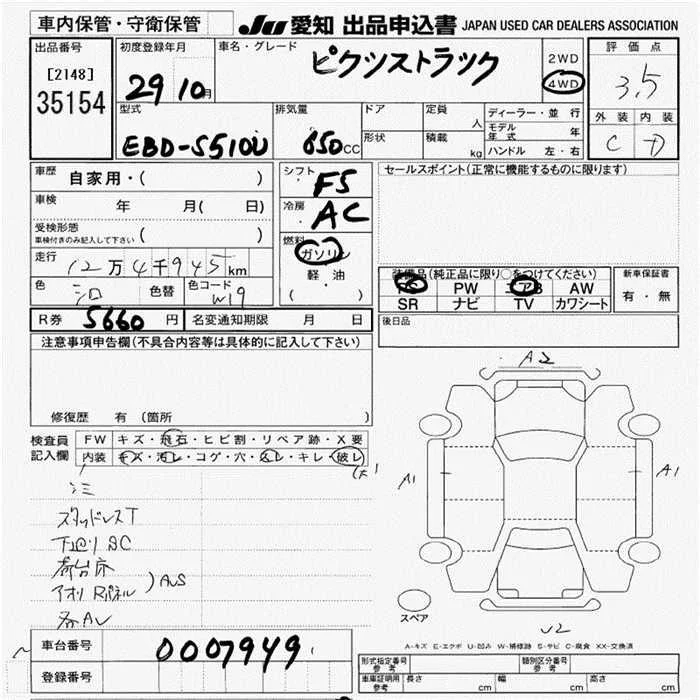 車内保管・守衛保管
JU 愛知 出品申込書 JAPAN USED CAR DEALERS ASSOCIATION
出品番号
[2148]
35154
初度登録年月
29 10月
車名・グレード
ピクシストラック
2WD
4WD
評価点
3.5
外装 内装
C D
型式
EBD-S510U
排気量
650CC
ドア
形状
定員
人
積載
kg
ディーラー・並行
モデル年式 年
ハンドル 左・右
車歴
自家用・( )
車検 年 月( 日)
受検形態
車検付きのみ記入して下さい ( )
走行
12万4千945km
色
シロ
色替
色コード
W19
シフト
F5
冷房
AC
燃料
ガソリン
軽油
( )
セールスポイント(正常に機能するものに限ります)
装備品(純正品に限り○をつけてください)
PS PW エアB AW
SR ナビ TV カワシート
新車保証書
有・無
R券 5660円
名変通知期限 月 日
後日品
注意事項申告欄(不具合内容等は具体的に記入して下さい)
修復歴 有 (箇所
検査員
記入欄
FW キズ・飛石・ヒビ割・リペア跡・X要
内装 キズ・汚レ・コゲ・穴・スレ・キレ・破レ
スタッドレスT
下廻りBC
荷台床
アオリRパネル
)AUS
各AU
A2
A1
A1
スペア
U2
A-キズ E-エクボ U-凹み W-補修跡 S-サビ C-腐食 XX-交換済
車台番号
0007949
登録番号
型式指定番号
参考
類別区分番号
参考
車庫証明用
参考
長さ cm 幅 cm 高さ cm